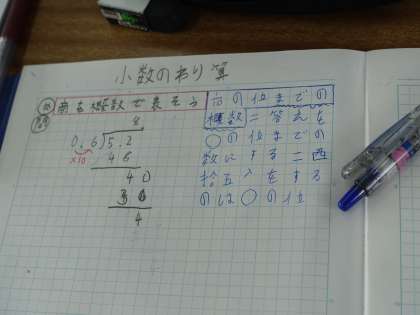 小数のわり算
商を概数で表そう
8
0.6)5.2
×10
4 0
4
の位までの
概数=答えを
○の位までの
数にする=四
捨五入をする
のは○の位